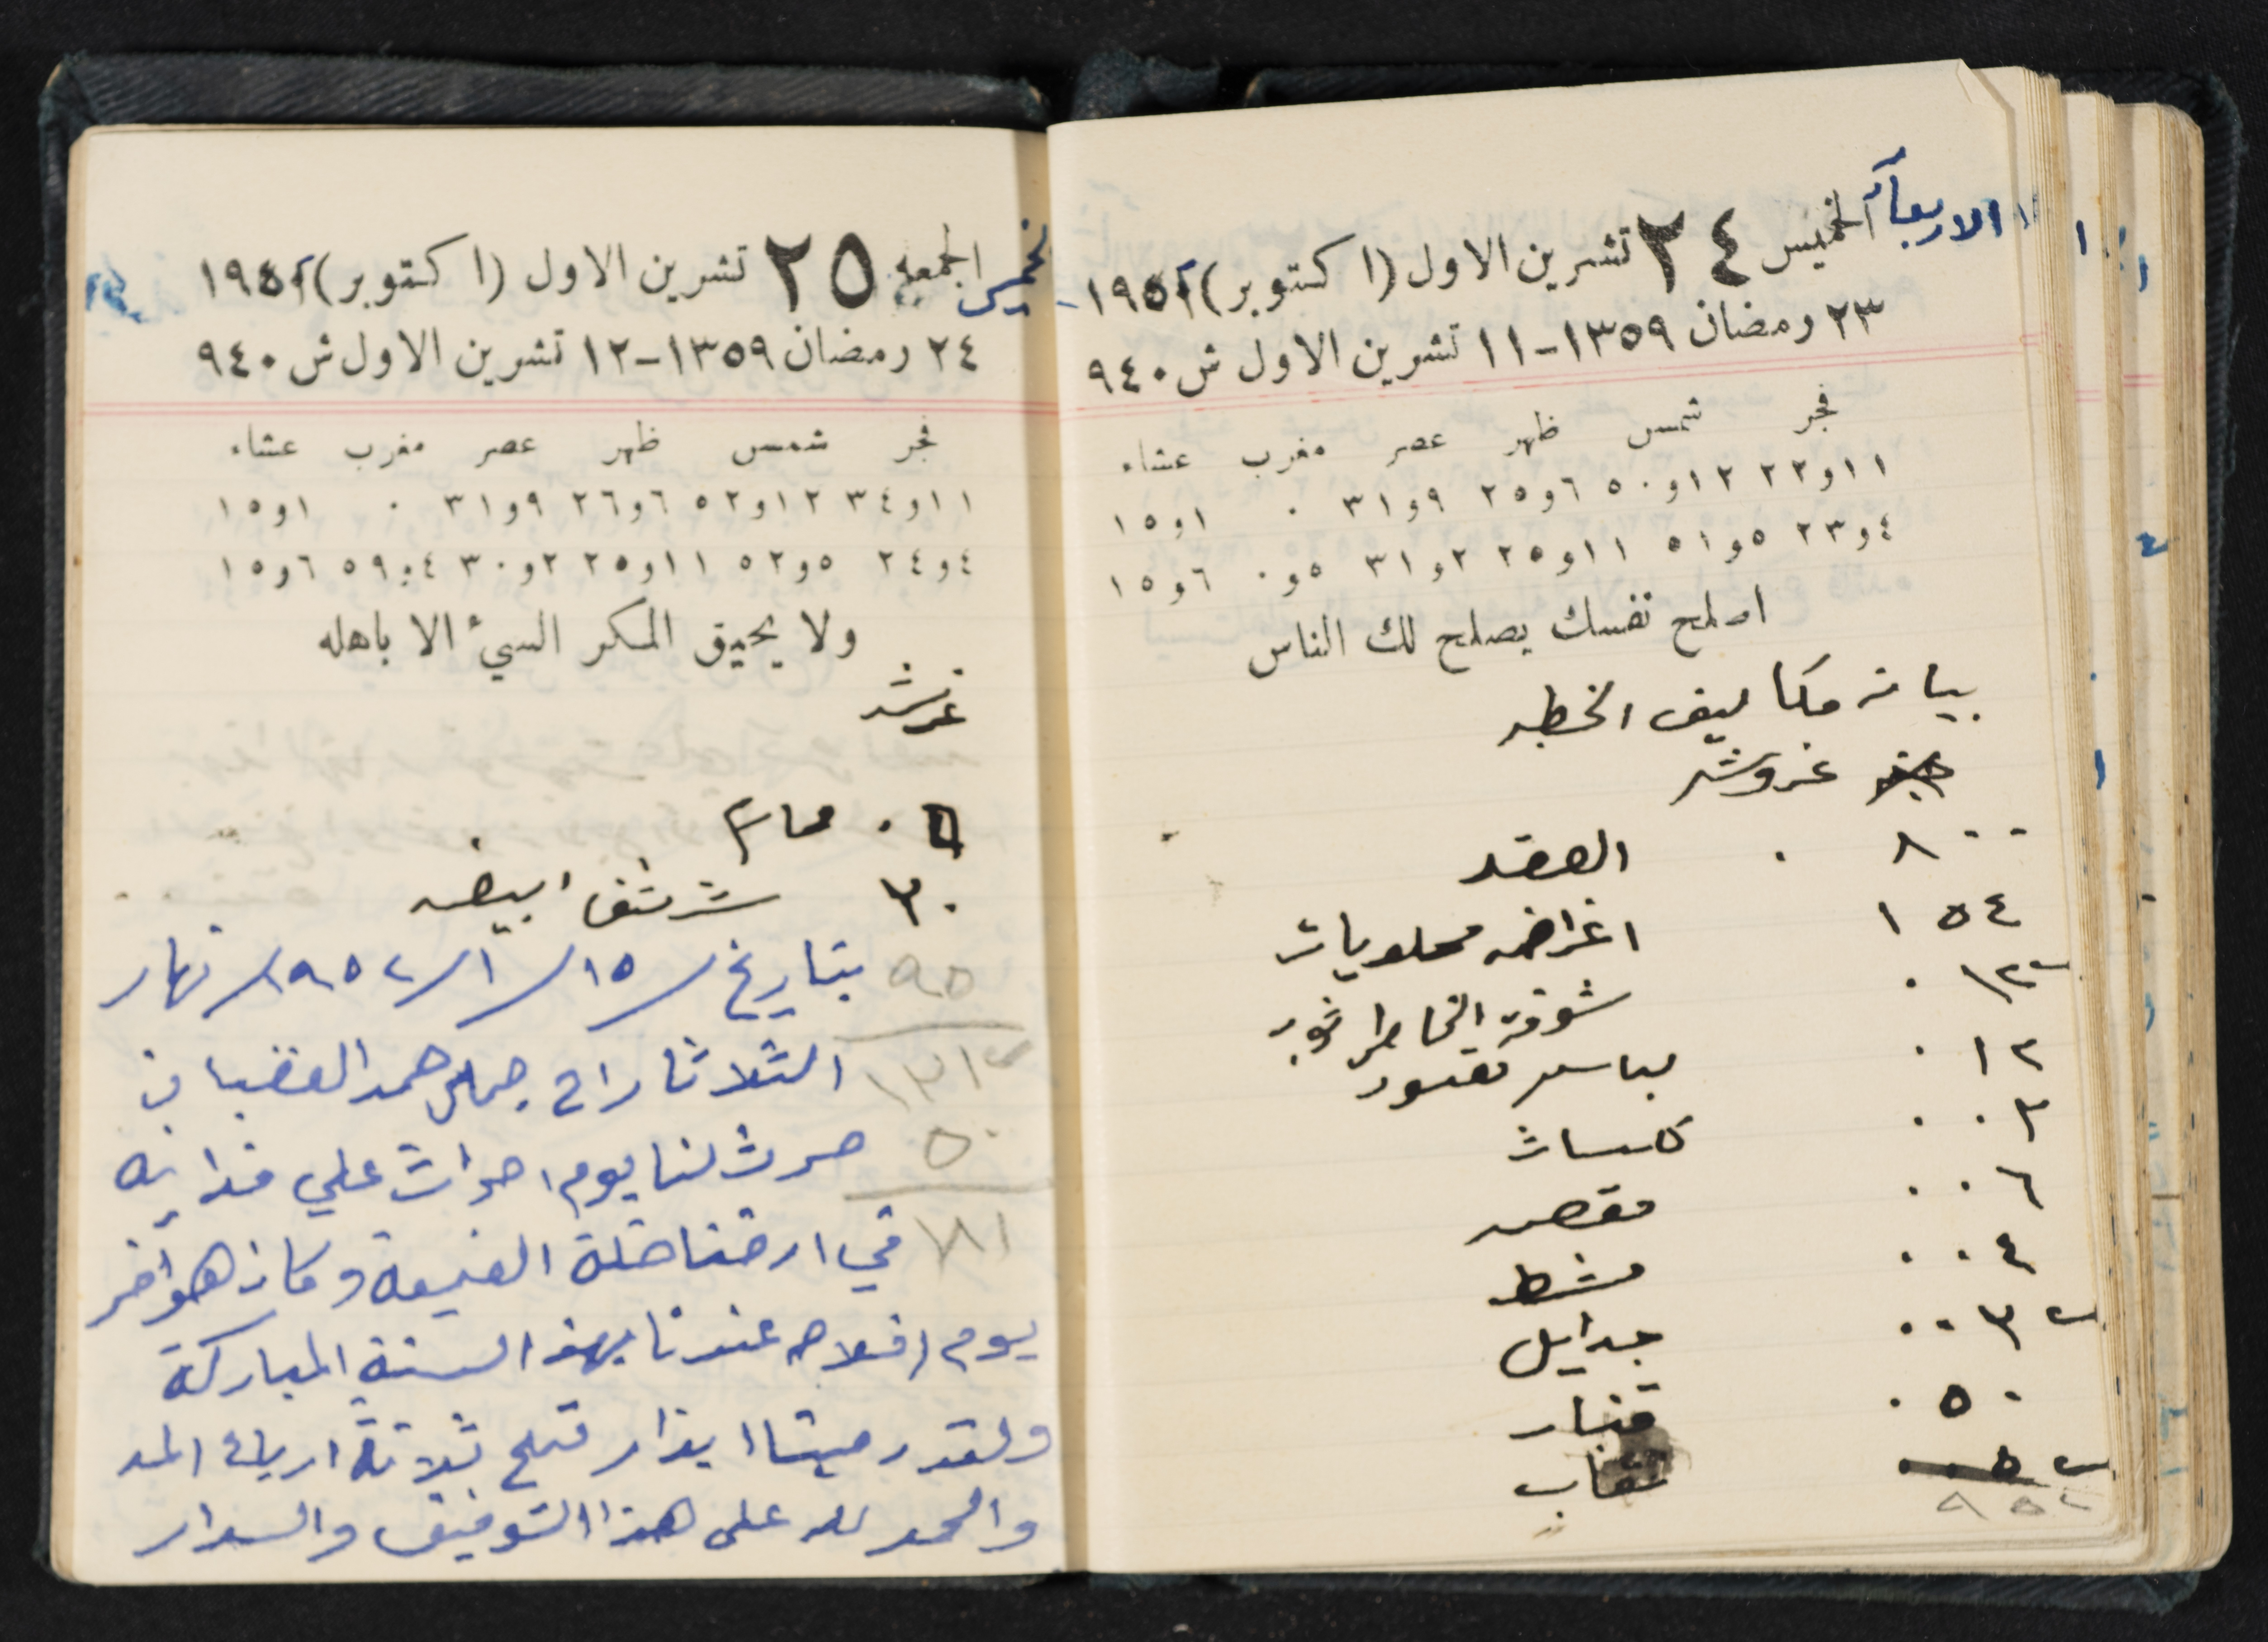 الاربعاء الخميس ٢٤ تشرين الاول (اكتوبر) ١٩٥١
٢٣ رمضان ١٣٥٩ - ١١ تشرين الاول ش ٩٤٠
فجر شمس ظهر عصر مغرب عشاء
١١و٢٢ ١٢و٥٠ ٦و٢٥ ٩و٣١ ٠ ١و١٥
٤و٢٣ ٥و٥١ ١١و٢٥ ٢و٣١ ٥و٠ ٦و١٥
اصلح نفسك يصلح لك الناس
بيان تكاليف الخطبه
غروش
٨٠٠ العقد
١٥٤ اغراض محلويات
شوفة الخاطر ثوب
١٢ لباس
٣ كلسات
مقص
٤ مشط
٣ جدايل
٥٠ قنباز
نقاب
٩٥٢
خميس الجمعه ٢٥ تشرين الاول (اكتوبر) ١٩٥١
٢٤ رمضان ١٣٥٩ - ١٢ تشرين الاول ش ٩٤٠
فجر شمس ظهر عصر مغرب عشاء
١١و٣٤ ١٢و٥٢ ٦و٢٦ ٩و٣١ ٠ ١و١٥
٤و٢٤ ٥و٥٢ ١١و٢٥ ٢و٣٠ ٤و٥٩ ٦و١٥
ولا يحيق المكر السيء الا باهله
غرش
٣٠ شرشف ابيض
بتاريخ ١٥/١/٩٥٢ نهار
الثلاثا راح جمال حمد الغضبان
حرث لنا يوم احراث علي فدانه
في ارضنا وكان هو آخر
يوم افلاحه عندنا بهذه السنة المباركة
ولقد رمينا ابذار قمح ثلاثة ارباع المد
والحمد لله على هذا التوفيق والسداد